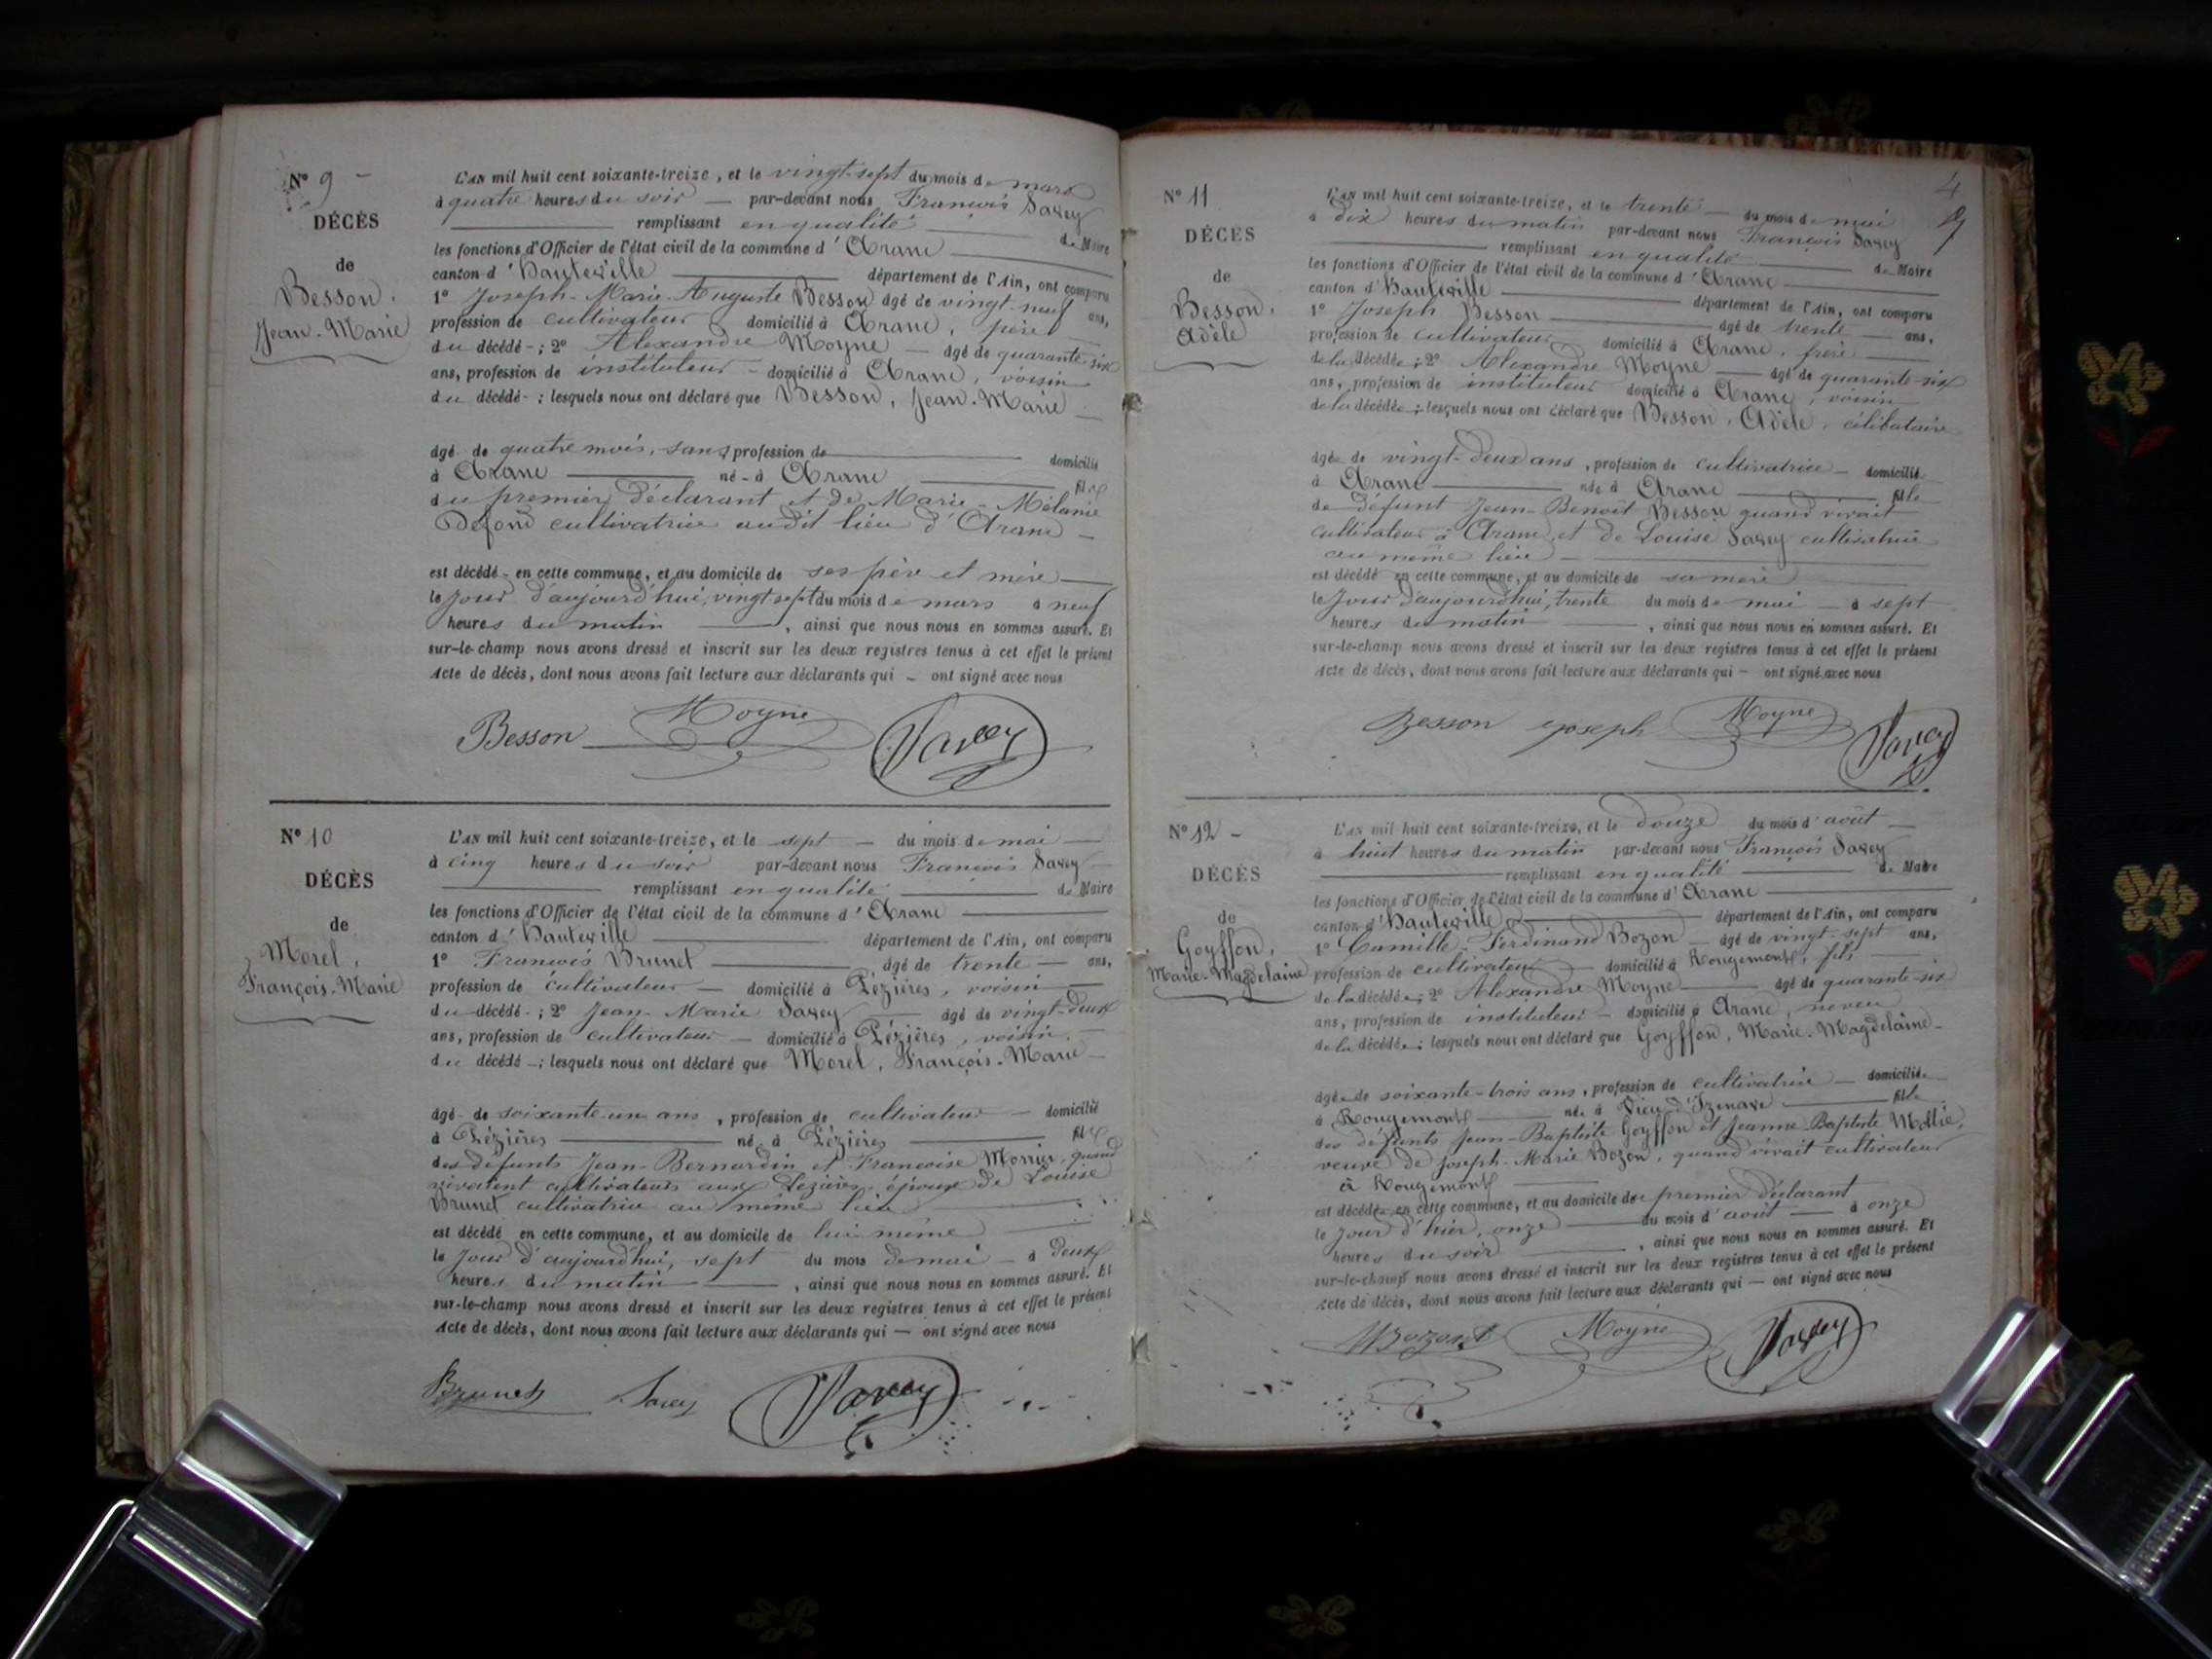 N° 9 -
DÉCÈS
de
Besson,
Jean-Marie
L'AN mil huit cent soixante-treize, et le vingt-sept du mois de mars
à quatre heures du soir — par-devant nous François Savey
remplissant en qualité de Maire
les fonctions d'Officier de l'état civil de la commune d'Aranc
canton d'Hauteville département de l'Ain, ont comparu
1° Joseph-Marie-Auguste Besson âgé de vingt-neuf ans,
profession de cultivateur domicilié à Aranc, père
du décédé - ; 2° Alexandre Moyne — âgé de quarante-six
ans, profession de instituteur - domicilié à Aranc, voisin
du décédé - ; lesquels nous ont déclaré que Besson, Jean-Marie —
âgé - de quatre mois, sans profession de domicilié
à Aranc né - à Aranc fils
du premier déclarant et de Marie-Mélanie
Defond cultivatrice audit lieu d'Aranc —
est décédé - en cette commune, et au domicile de ses père et mère
le jour d'aujourd'hui, vingt-sept du mois de mars à neuf
heures du matin , ainsi que nous nous en sommes assuré. Et
sur-le-champ nous avons dressé et inscrit sur les deux registres tenus à cet effet le présent
Acte de décès, dont nous avons fait lecture aux déclarants qui - ont signé avec nous
Besson Moyne Savey
N° 10
DÉCÈS
de
Morel,
François-Marie
L'AN mil huit cent soixante-treize, et le sept — du mois de mai —
à cinq heures du soir par-devant nous François Savey
remplissant en qualité de Maire
les fonctions d'Officier de l'état civil de la commune d'Aranc
canton d'Hauteville département de l'Ain, ont comparu
1° François Brunet âgé de trente — ans,
profession de cultivateur — domicilié à Lézières, voisin
du décédé - ; 2° Jean-Marie Savey âgé de vingt-deux
ans, profession de cultivateur — domicilié à Lézières, voisin
du décédé - ; lesquels nous ont déclaré que Morel, François-Marie —
âgé - de soixante-un ans , profession de cultivateur — domicilié
à Lézières né - à Lézières fils
des défunts Jean-Bernardin et Françoise Monnier, quand
vivaient cultivateurs aux Lézières, époux de Louise
Brunet cultivatrice au même lieu
est décédé en cette commune, et au domicile de lui-même
le jour d'aujourd'hui, sept du mois de mai — à deux
heures du matin , ainsi que nous nous en sommes assuré. Et
sur-le-champ nous avons dressé et inscrit sur les deux registres tenus à cet effet le présent
Acte de décès, dont nous avons fait lecture aux déclarants qui — ont signé avec nous
Brunet Savey Savey
4
N° 11
DÉCÈS
de
Besson,
Adèle
L'AN mil huit cent soixante-treize, et le trente — du mois de mai
à dix heures du matin par-devant nous François Savey
remplissant en qualité de Maire
les fonctions d'Officier de l'état civil de la commune d'Aranc
canton d'Hauteville département de l'Ain, ont comparu
1° Joseph Besson âgé de trente — ans,
profession de cultivateur domicilié à Aranc, frère
de la décédée ; 2° Alexandre Moyne — âgé de quarante-six
ans, profession de instituteur domicilié à Aranc, voisin
de la décédée ; lesquels nous ont déclaré que Besson, Adèle, célibataire
âgée de vingt-deux ans , profession de cultivatrice — domiciliée
à Aranc née à Aranc fille
de défunt Jean-Benoit Besson quand vivait
cultivateur à Aranc, et de Louise Savey cultivatrice
au même lieu —
est décédé en cette commune, et au domicile de sa mère
le jour d'aujourd'hui, trente du mois de mai — à sept
heures du matin , ainsi que nous nous en sommes assuré. Et
sur-le-champ nous avons dressé et inscrit sur les deux registres tenus à cet effet le présent
Acte de décès, dont nous avons fait lecture aux déclarants qui — ont signé avec nous
Besson joseph Moyne Savey
N° 12 -
DÉCÈS
de
Goyffon,
Marie-Magdelaine
L'AN mil huit cent soixante-treize, et le douze du mois d'août —
à huit heures du matin par-devant nous François Savey
remplissant en qualité de Maire
les fonctions d'Officier de l'état civil de la commune d'Aranc
canton d'Hauteville département de l'Ain, ont comparu
1° Camille-Ferdinand Bozon — âgé de vingt-sept ans,
profession de cultivateur domicilié à Rougemont, fils
de la décédée ; 2° Alexandre Moyne âgé de quarante-six
ans, profession de instituteur — domicilié à Aranc, neveu
de la décédée ; lesquels nous ont déclaré que Goyffon, Marie-Magdelaine -
âgée de soixante-trois ans, profession de cultivatrice — domiciliée
à Rougemont née à Vieu-d'Izenave fille
des défunts Jean-Baptiste Goyffon et Jeanne Baptiste
veuve de Joseph-Marie Bozon, quand vivait cultivateur
à Rougemont
est décédée en cette commune, et au domicile du premier déclarant
le jour d'hier, onze du mois d'août — à onze
heures du soir , ainsi que nous nous en sommes assuré. Et
sur-le-champ nous avons dressé et inscrit sur les deux registres tenus à cet effet le présent
Acte de décès, dont nous avons fait lecture aux déclarants qui — ont signé avec nous
Moyne Savey